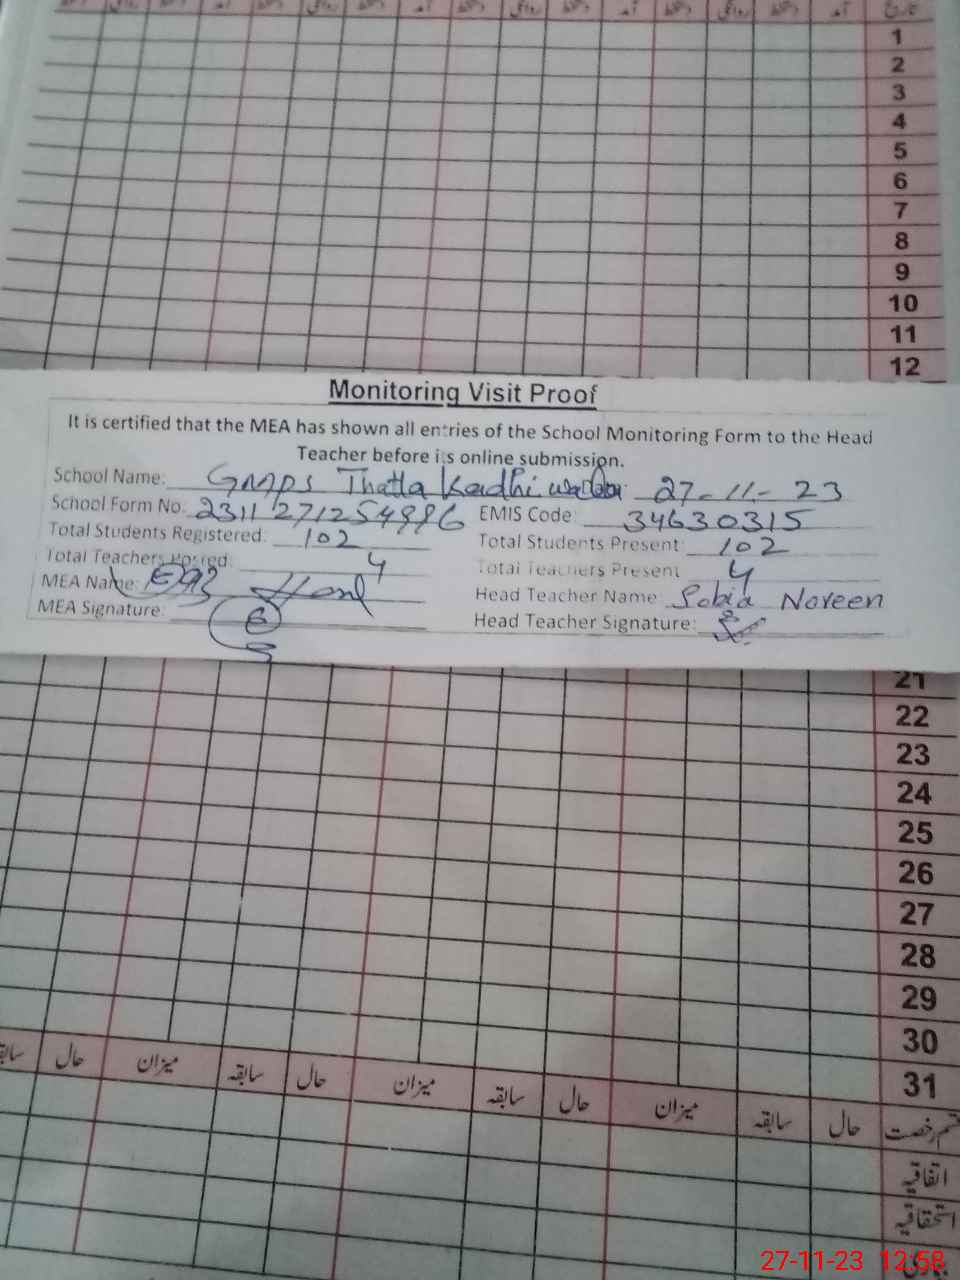 تاریخ آمد دستخط روانگی دستخط آمد دستخط روانگی دستخط آمد دستخط روانگی دستخط
1
2
3
4
5
6
7
8
9
10
11
12
Monitoring Visit Proof
It is certified that the MEA has shown all entries of the School Monitoring Form to the Head
Teacher before its online submission.
School Name: GMPS Thatta 27-11-23
School Form No: 2311271254996 EMIS Code: 34630315
Total Students Registered: 102 Total Students Present: 102
Total Teachers Posted: 4 Total Teachers Present 4
MEA Name: Head Teacher Name: Sobia Noreen
MEA Signature: Head Teacher Signature:
21
22
23
24
25
26
27
28
29
30
31
قسم رخصت حال سابقہ میزان حال سابقہ میزان حال سابقہ میزان حال سابقہ
اتفاقیہ
استحقاقیہ
27-11-23 12:58